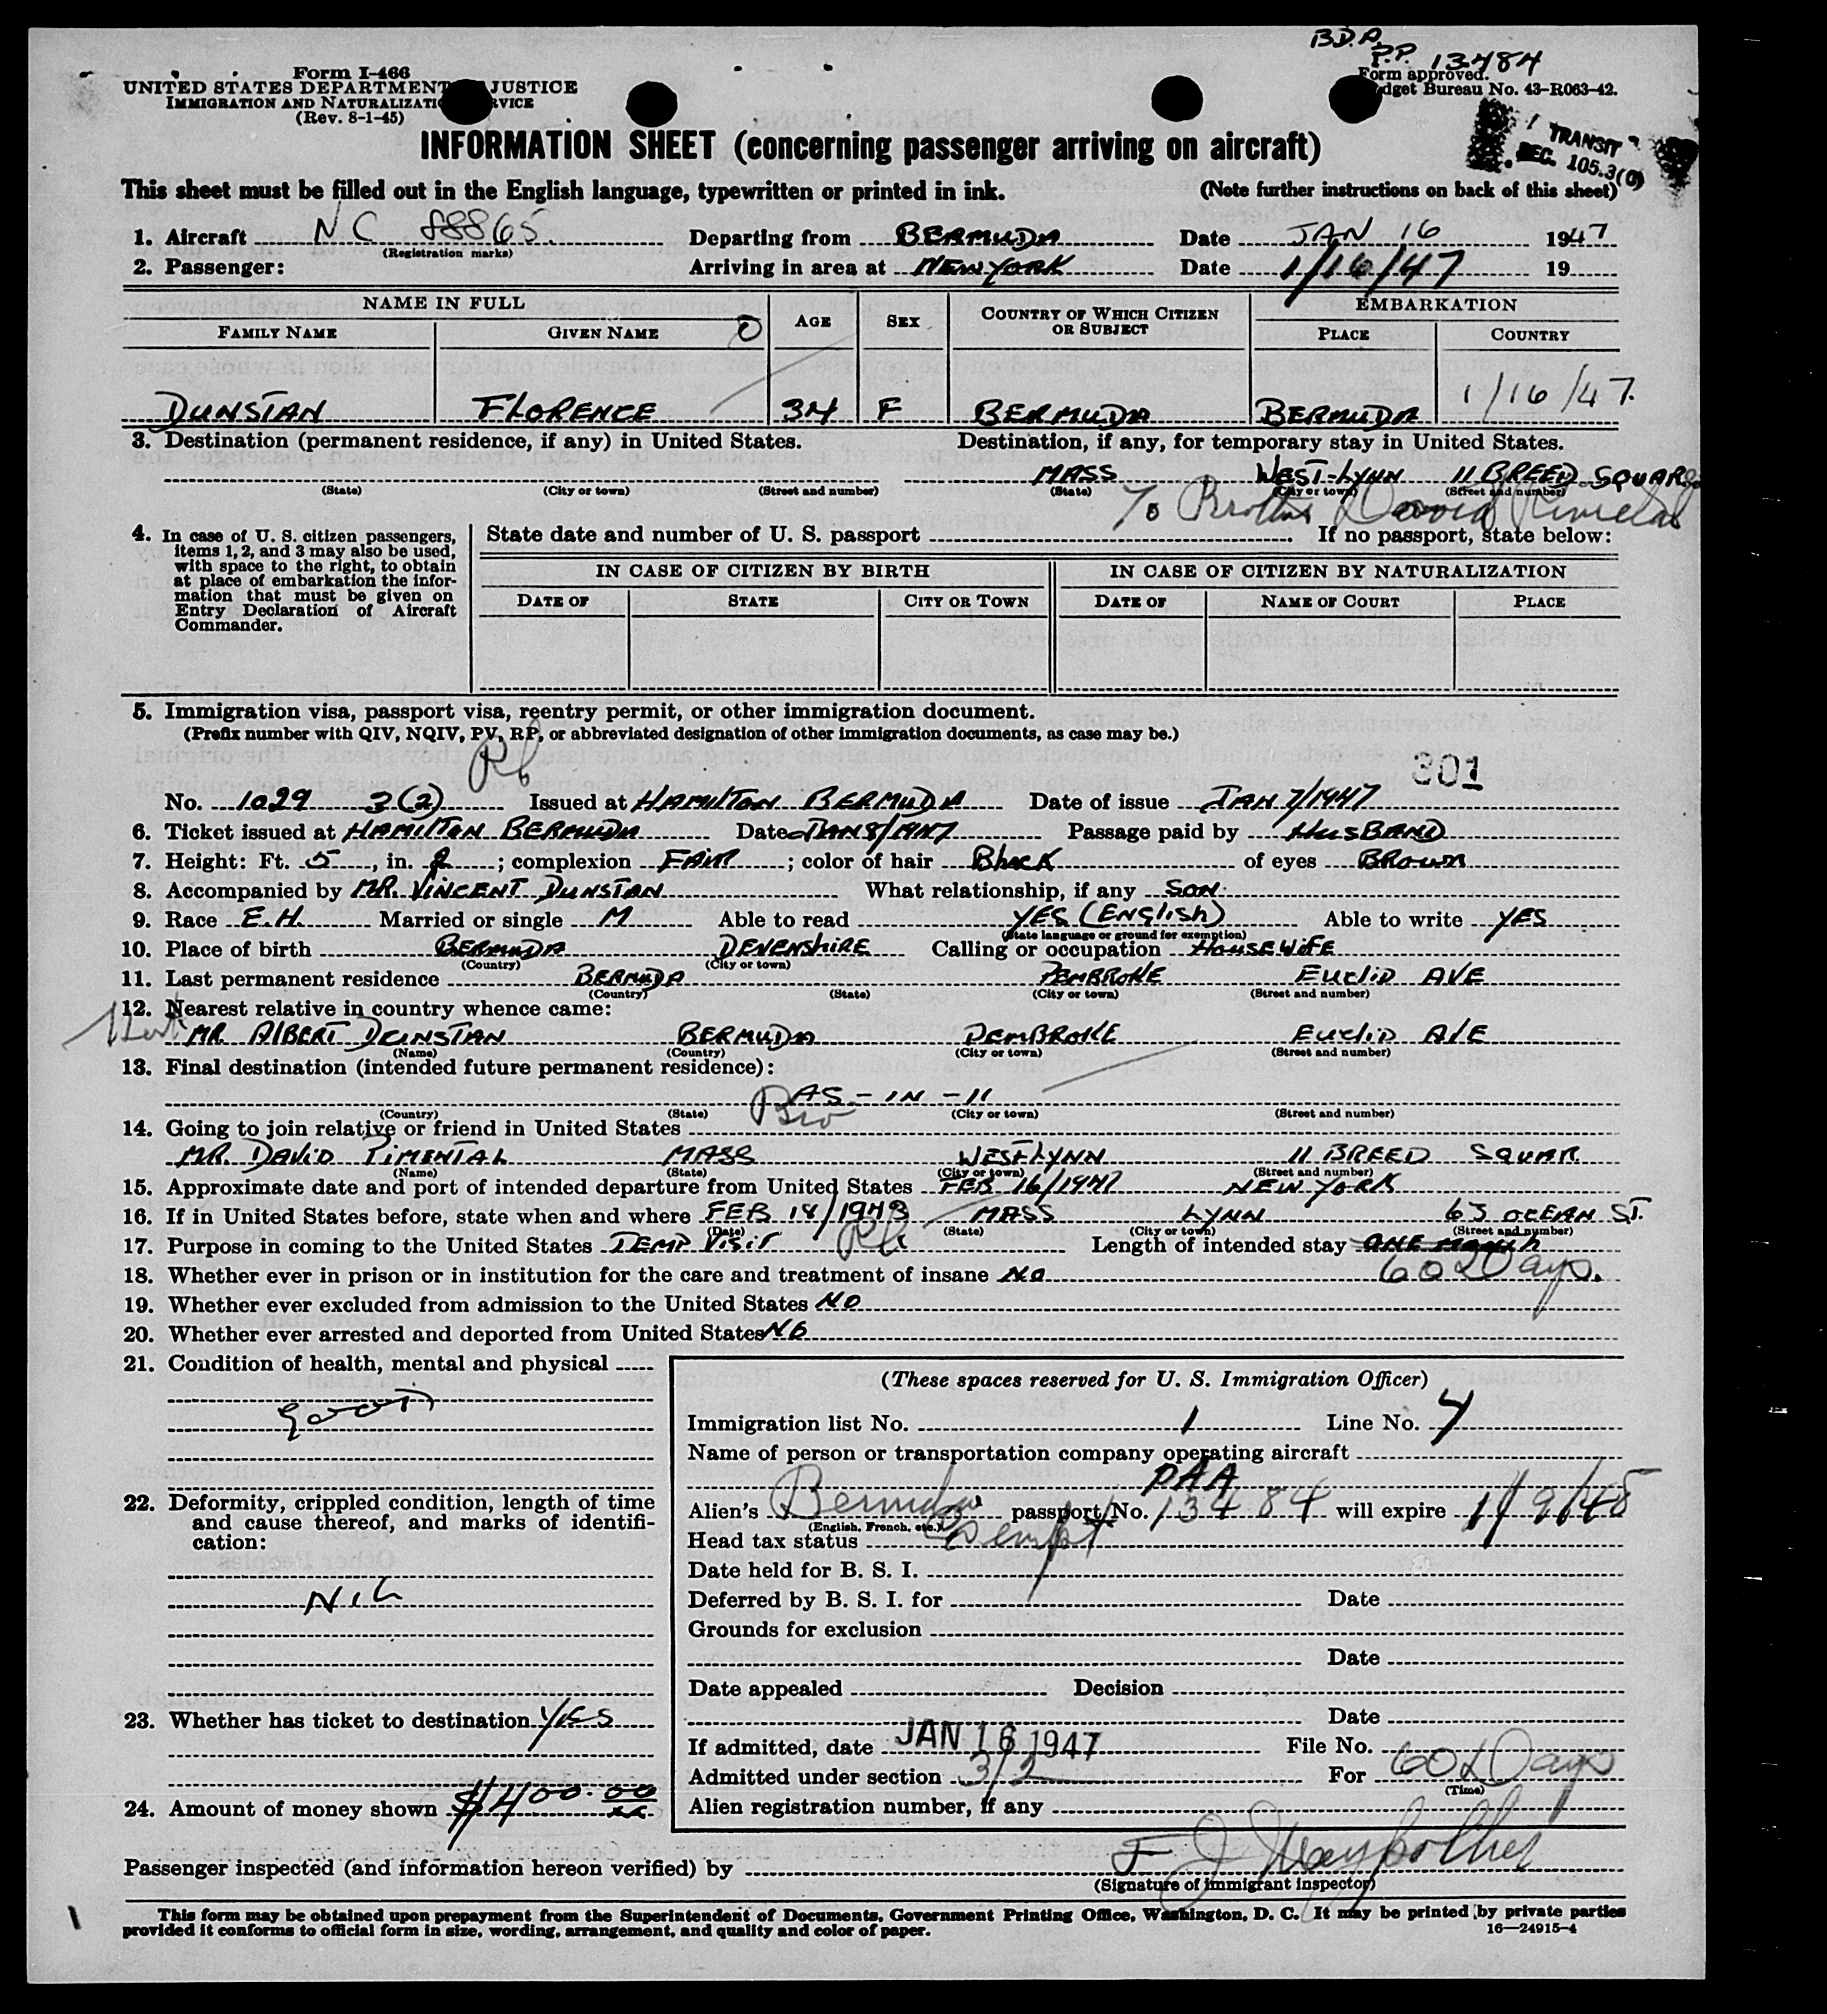 B.D.A.
P.P. 13484
Form I-466
UNITED STATES DEPARTMENT JUSTICE
IMMIGRATION AND NATURALIZATION SERVICE
(Rev. 8-1-45)
Form approved.
Budget Bureau No. 43-R063-42.
TRANSIT
SEC. 105.3(0)
INFORMATION SHEET (concerning passenger arriving on aircraft)
This sheet must be filled out in the English language, typewritten or printed in ink. (Note further instructions on back of this sheet)
1. Aircraft NC 88865. Departing from BERMUDA Date JAN 16 1947
(Registration marks)
2. Passenger: Arriving in area at NEW YORK Date 1/16/47 19
NAME IN FULL AGE SEX COUNTRY OF WHICH CITIZEN OR SUBJECT EMBARKATION
FAMILY NAME GIVEN NAME PLACE COUNTRY
DUNSTAN FLORENCE 34 F BERMUDA BERMUDA 1/16/47.
3. Destination (permanent residence, if any) in United States. Destination, if any, for temporary stay in United States.
MASS WEST-LYNN 11 BREED SQUARE
(State) (City or town) (Street and number) (State) (City or town) (Street and number)
To Brother David
4. In case of U. S. citizen passengers, items 1, 2, and 3 may also be used, with space to the right, to obtain at place of embarkation the information that must be given on Entry Declaration of Aircraft Commander.
State date and number of U. S. passport . If no passport, state below:
IN CASE OF CITIZEN BY BIRTH IN CASE OF CITIZEN BY NATURALIZATION
DATE OF STATE CITY OR TOWN DATE OF NAME OF COURT PLACE
5. Immigration visa, passport visa, reentry permit, or other immigration document.
(Prefix number with QIV, NQIV, PV, RP, or abbreviated designation of other immigration documents, as case may be.)
301
No. 1029 3(2) Issued at HAMILTON BERMUDA Date of issue JAN 7/1947
6. Ticket issued at HAMILTON BERMUDA Date JAN 8/1947 Passage paid by HUSBAND
7. Height: Ft. 5, in. 2; complexion FAIR; color of hair Black of eyes BROWN
8. Accompanied by MR. VINCENT DUNSTAN What relationship, if any SON
9. Race E.H. Married or single M Able to read YES (ENGLISH) Able to write YES
(State language or ground for exemption)
10. Place of birth BERMUDA DEVENSHIRE Calling or occupation HOUSEWIFE
(Country) (City or town)
11. Last permanent residence BERMUDA PEMBROKE EUCLID AVE
(Country) (State) (City or town) (Street and number)
12. Nearest relative in country whence came:
MR. ALBERT DUNSTAN BERMUDA PEMBROKE EUCLID AVE
(Name) (Country) (City or town) (Street and number)
13. Final destination (intended future permanent residence):
AS - IN - 11
(Country) (State) (City or town) (Street and number)
Bro
14. Going to join relative or friend in United States
MR. DAVID PIMENTAL MASS WEST LYNN 11 BREED SQUAR
(Name) (State) (City or town) (Street and number)
15. Approximate date and port of intended departure from United States FEB 16/1947 NEW YORK
16. If in United States before, state when and where FEB 18/1943 MASS LYNN 63 OCEAN ST.
(Date) (State) (City or town) (Street and number)
17. Purpose in coming to the United States TEMP VISIT Length of intended stay ONE MONTH
60 Days.
18. Whether ever in prison or in institution for the care and treatment of insane NO
19. Whether ever excluded from admission to the United States NO
20. Whether ever arrested and deported from United States NO
21. Condition of health, mental and physical
good
22. Deformity, crippled condition, length of time and cause thereof, and marks of identification:
NIL
23. Whether has ticket to destination YES
24. Amount of money shown $400.00
(These spaces reserved for U. S. Immigration Officer)
Immigration list No. 1 Line No. 4
Name of person or transportation company operating aircraft
PAA
Alien's Bermuda passport No. 13484 will expire 1/9/48
(English, French, etc.)
Head tax status Exempt
Date held for B. S. I.
Deferred by B. S. I. for Date
Grounds for exclusion
Date
Date appealed Decision
Date
If admitted, date JAN 16 1947 File No.
Admitted under section 3/2 For 60 Days
(Time)
Alien registration number, if any
Passenger inspected (and information hereon verified) by
(Signature of immigrant inspector)
This form may be obtained upon prepayment from the Superintendent of Documents, Government Printing Office, Washington, D. C. It may be printed by private parties
provided it conforms to official form in size, wording, arrangement, and quality and color of paper. 16—24915-4